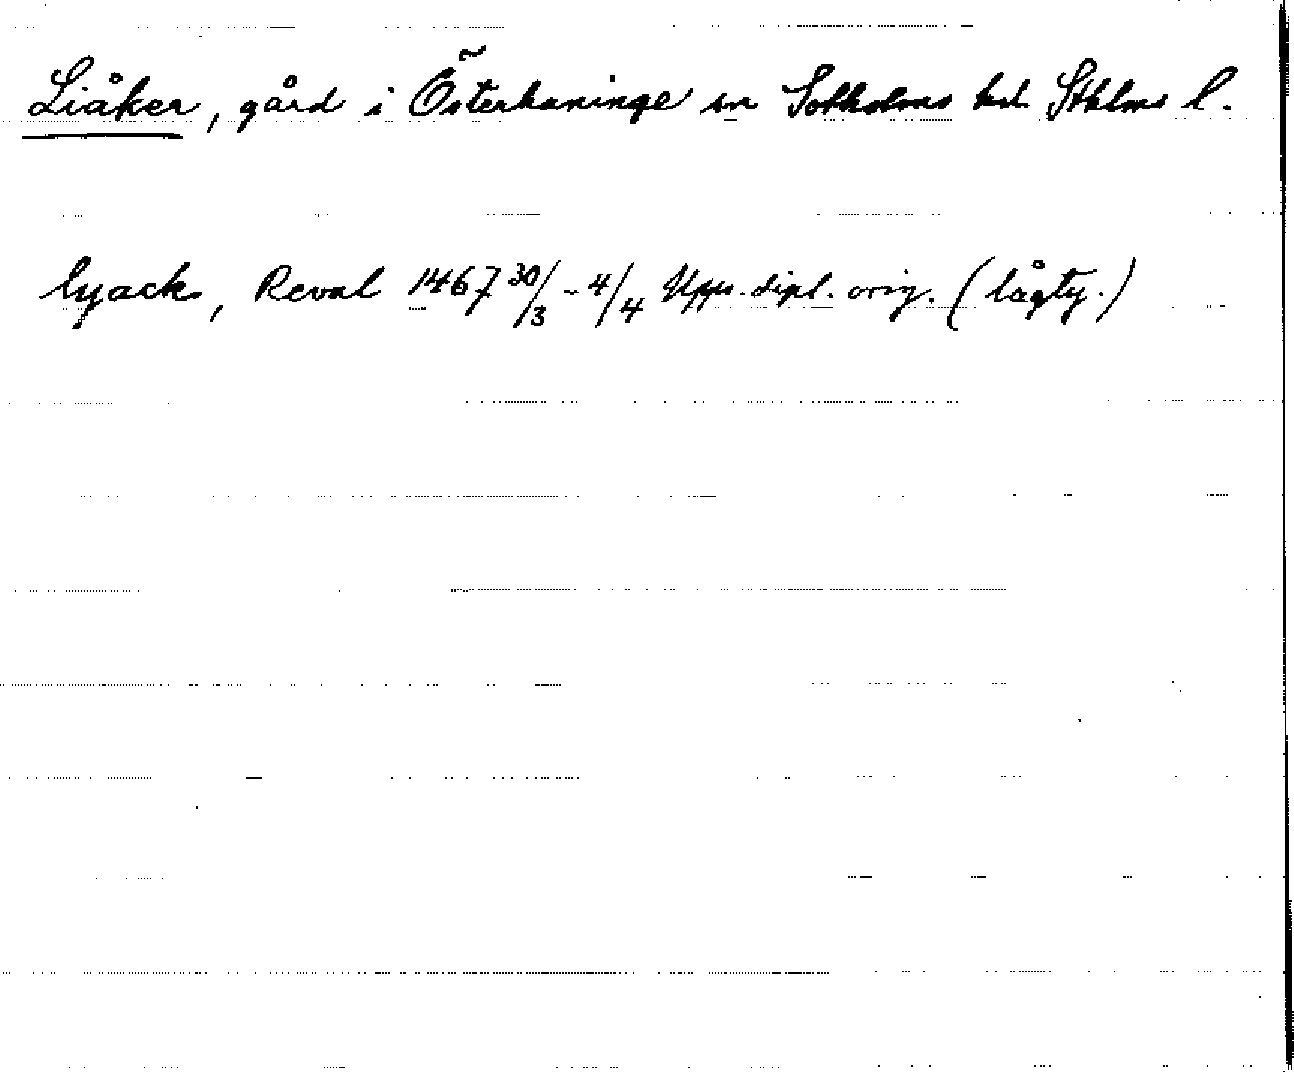 Liåker, gård i Österhaninge sn Sotholms hd. Sthlms l.
lyack, Reval 1467 30/3 - 4/4 Upps. dipl. orig. (lågty.)